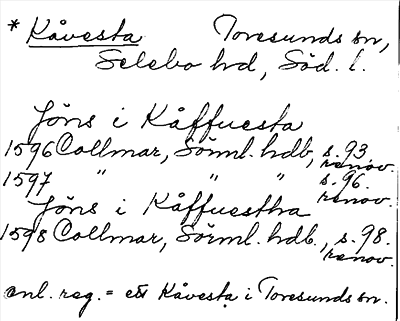 * Kåvesta Toresunds sn,
Selebo hd, Söd. l.
Jöns i Kåffuesta
1596 Collmar, Sörml. hdb, s. 93
renov.
1597 " " " s. 96.
renov.
Jöns i Kåffuestha
1598 Collmar, Sörml. hdb., s. 98.
renov.
enl. reg. = ett Kåvesta i Toresunds sn.